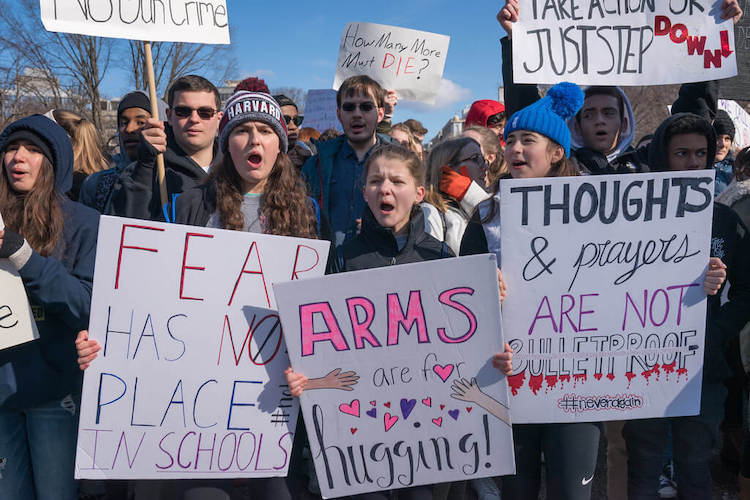 No Gun Crime
How Many More
Must DIE?
TAKE ACTION OR
JUST STEP DOWN!
HARVARD
FEAR
HAS NO
PLACE
IN SCHOOLS
ARMS
are for
hugging!
THOUGHTS
& prayers
ARE NOT
BULLETPROOF
#neveragain